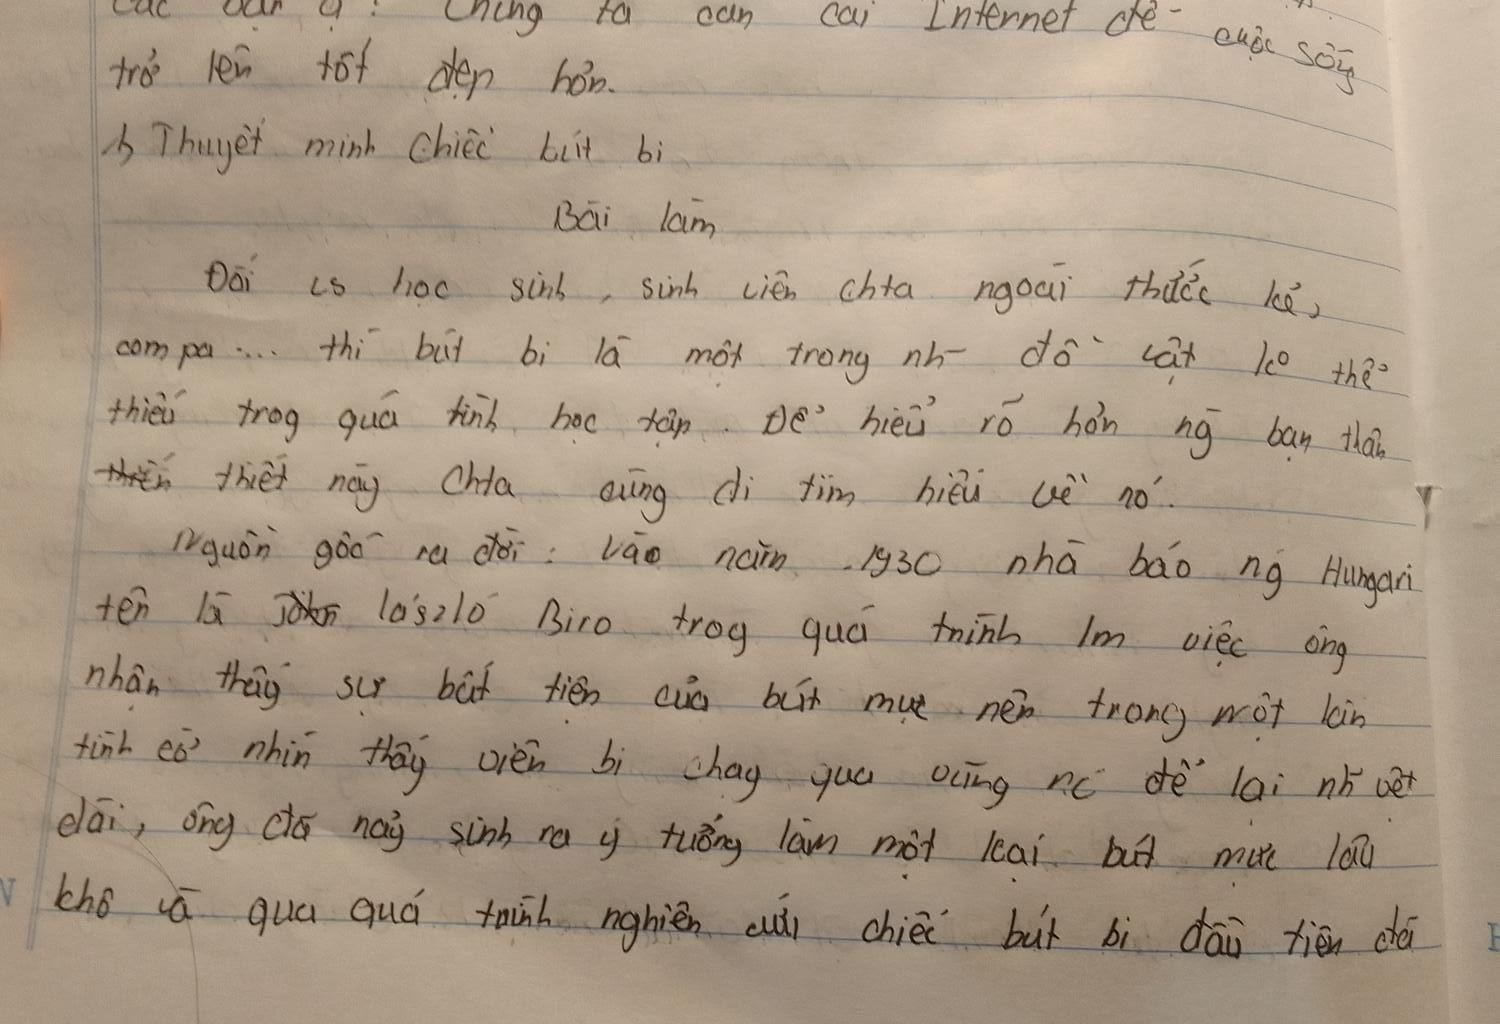 Các bạn ạ! Chúng ta cần cái Internet để cuộc sống
trở lên tốt đẹp hơn.
Thuyết minh chiếc bút bi
Bài làm
Đối vs học sinh, sinh viên chta ngoài thước kẻ,
compa .... thì bút bi là một trong nh~ đồ vật ko thể
thiếu trog quá tình học tập. Để hiểu rõ hơn ng bạn thân
thiết này chta cùng đi tìm hiểu về nó.
Nguồn gốc ra đời: Vào năm 1930 nhà báo ng Hungari
tên là lászló Biro trog quá trình lm việc ông
nhận thấy sự bất tiện của bút mực nên trong một lần
tình cờ nhìn thấy viên bi chạy qua vũng nc để lại nh~ vệt
dài, ông đã nảy sinh ra ý tưởng làm một loại bút mực lâu
khô và qua quá trình nghiên cứu chiếc bút bi đầu tiên đã